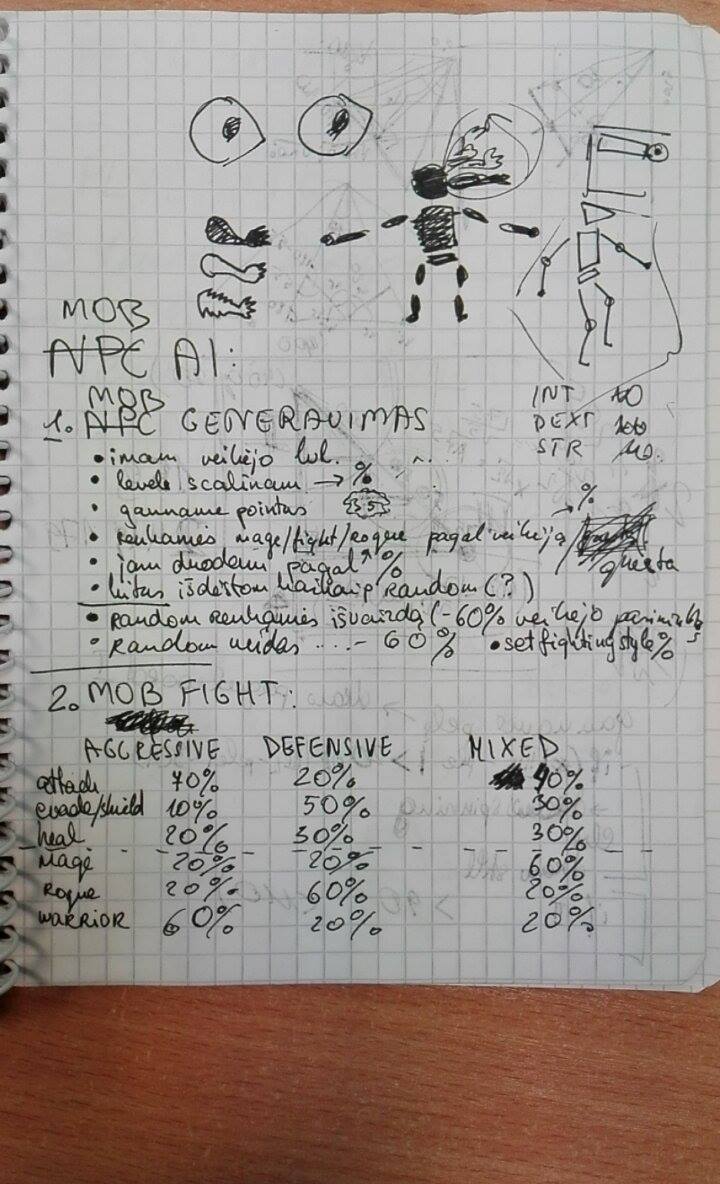 MOB
NPC AI:
MOB
1. NPC GENERAVIMAS
INT
DEXT
STR
• imam veikėjo lvl.
• levelį scalinam → %
• gauname pointus 5
→ %
• renkamės mage/fight/rogue pagal veikėją/
questa
• jam duodam pagal %
• kitus išdėstom kažkaip random (?)
• random renkamės išvaizdą (-60% veikėjo
• random veidas ....- 60% • set fighting style %
2. MOB FIGHT:
AGGRESSIVE DEFENSIVE MIXED
attack 70% 20% 40%
evade/shield 10% 50% 30%
heal 20% 30% 30%
Mage 20% 20% 60%
Rogue 20% 60% 20%
WARRIOR 60% 20% 20%